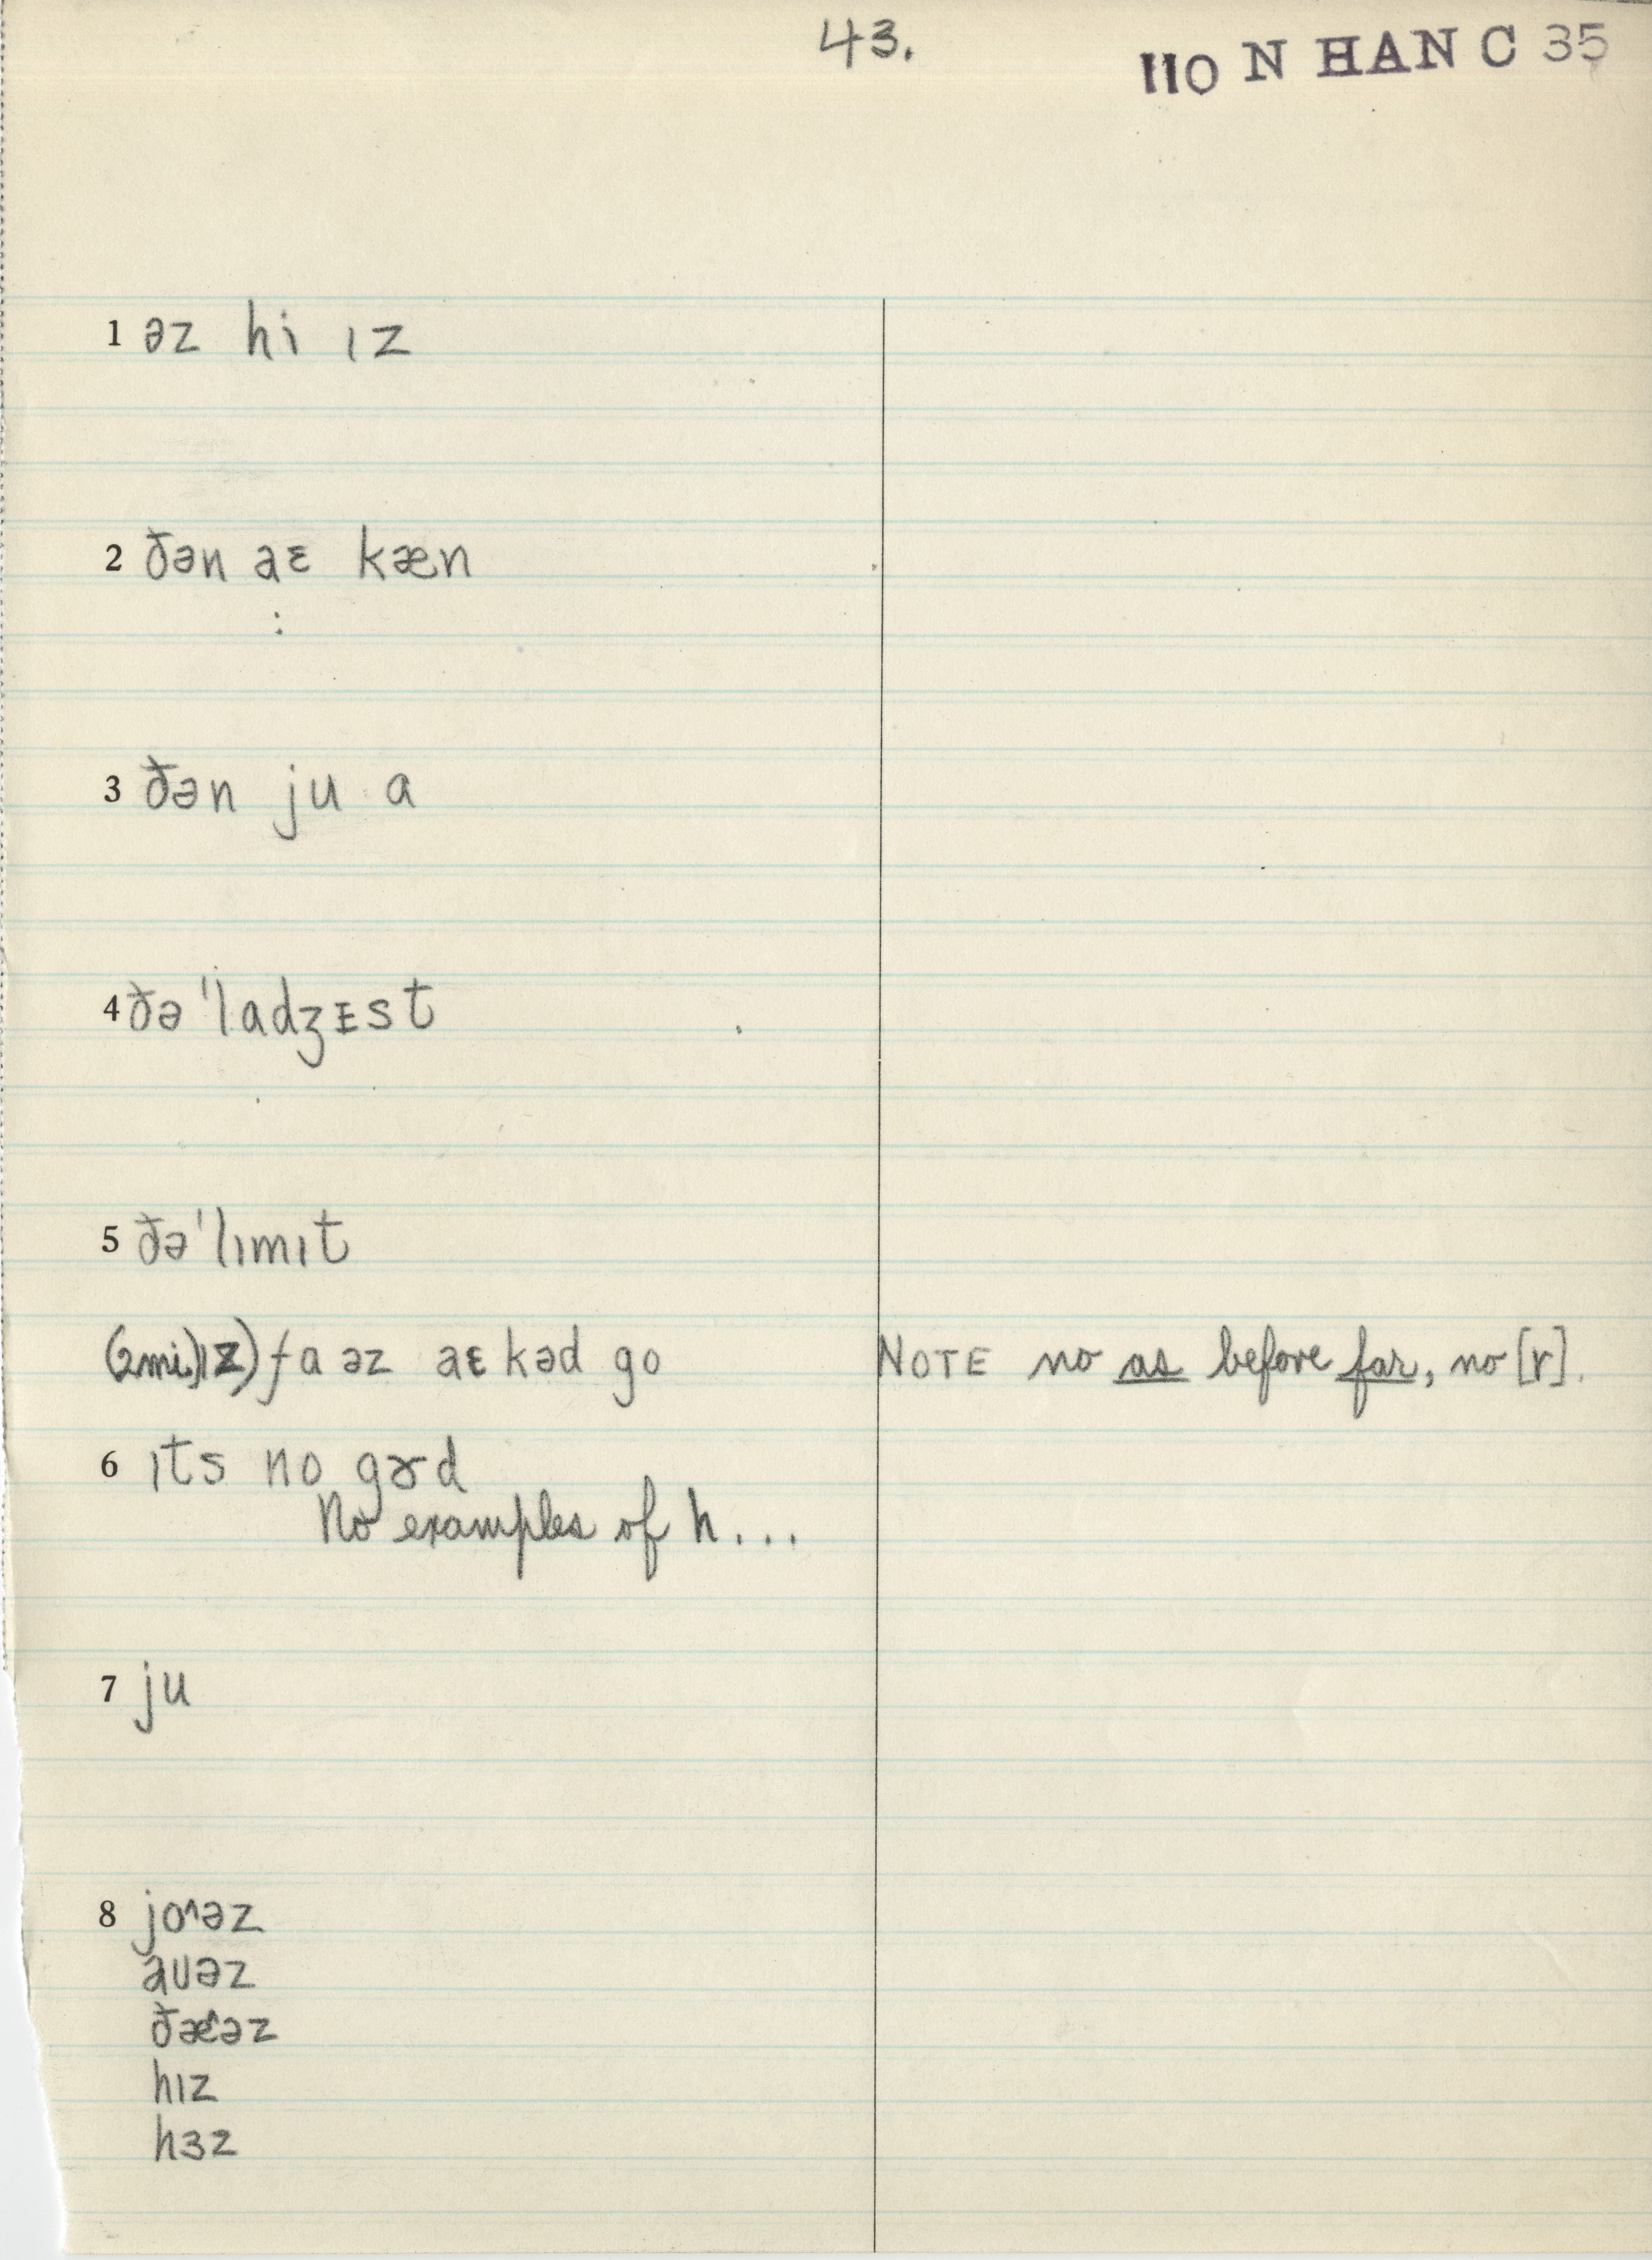 43.
110 N HAN C 35
1 əz hi ɪz
2 ðən aɛ kæn
:
3 ðən ju a
4 ðə ˈladʒᴇst
5 ðə ˈlɪmɪt
(2mi)ɪz) fa əz aɛ kəd go NOTE no as before far, no [r].
6 ɪts no gɤd
No examples of h...
7 ju
8 jo^əz
auəz
ðæ^əz
hɪz
hɜz